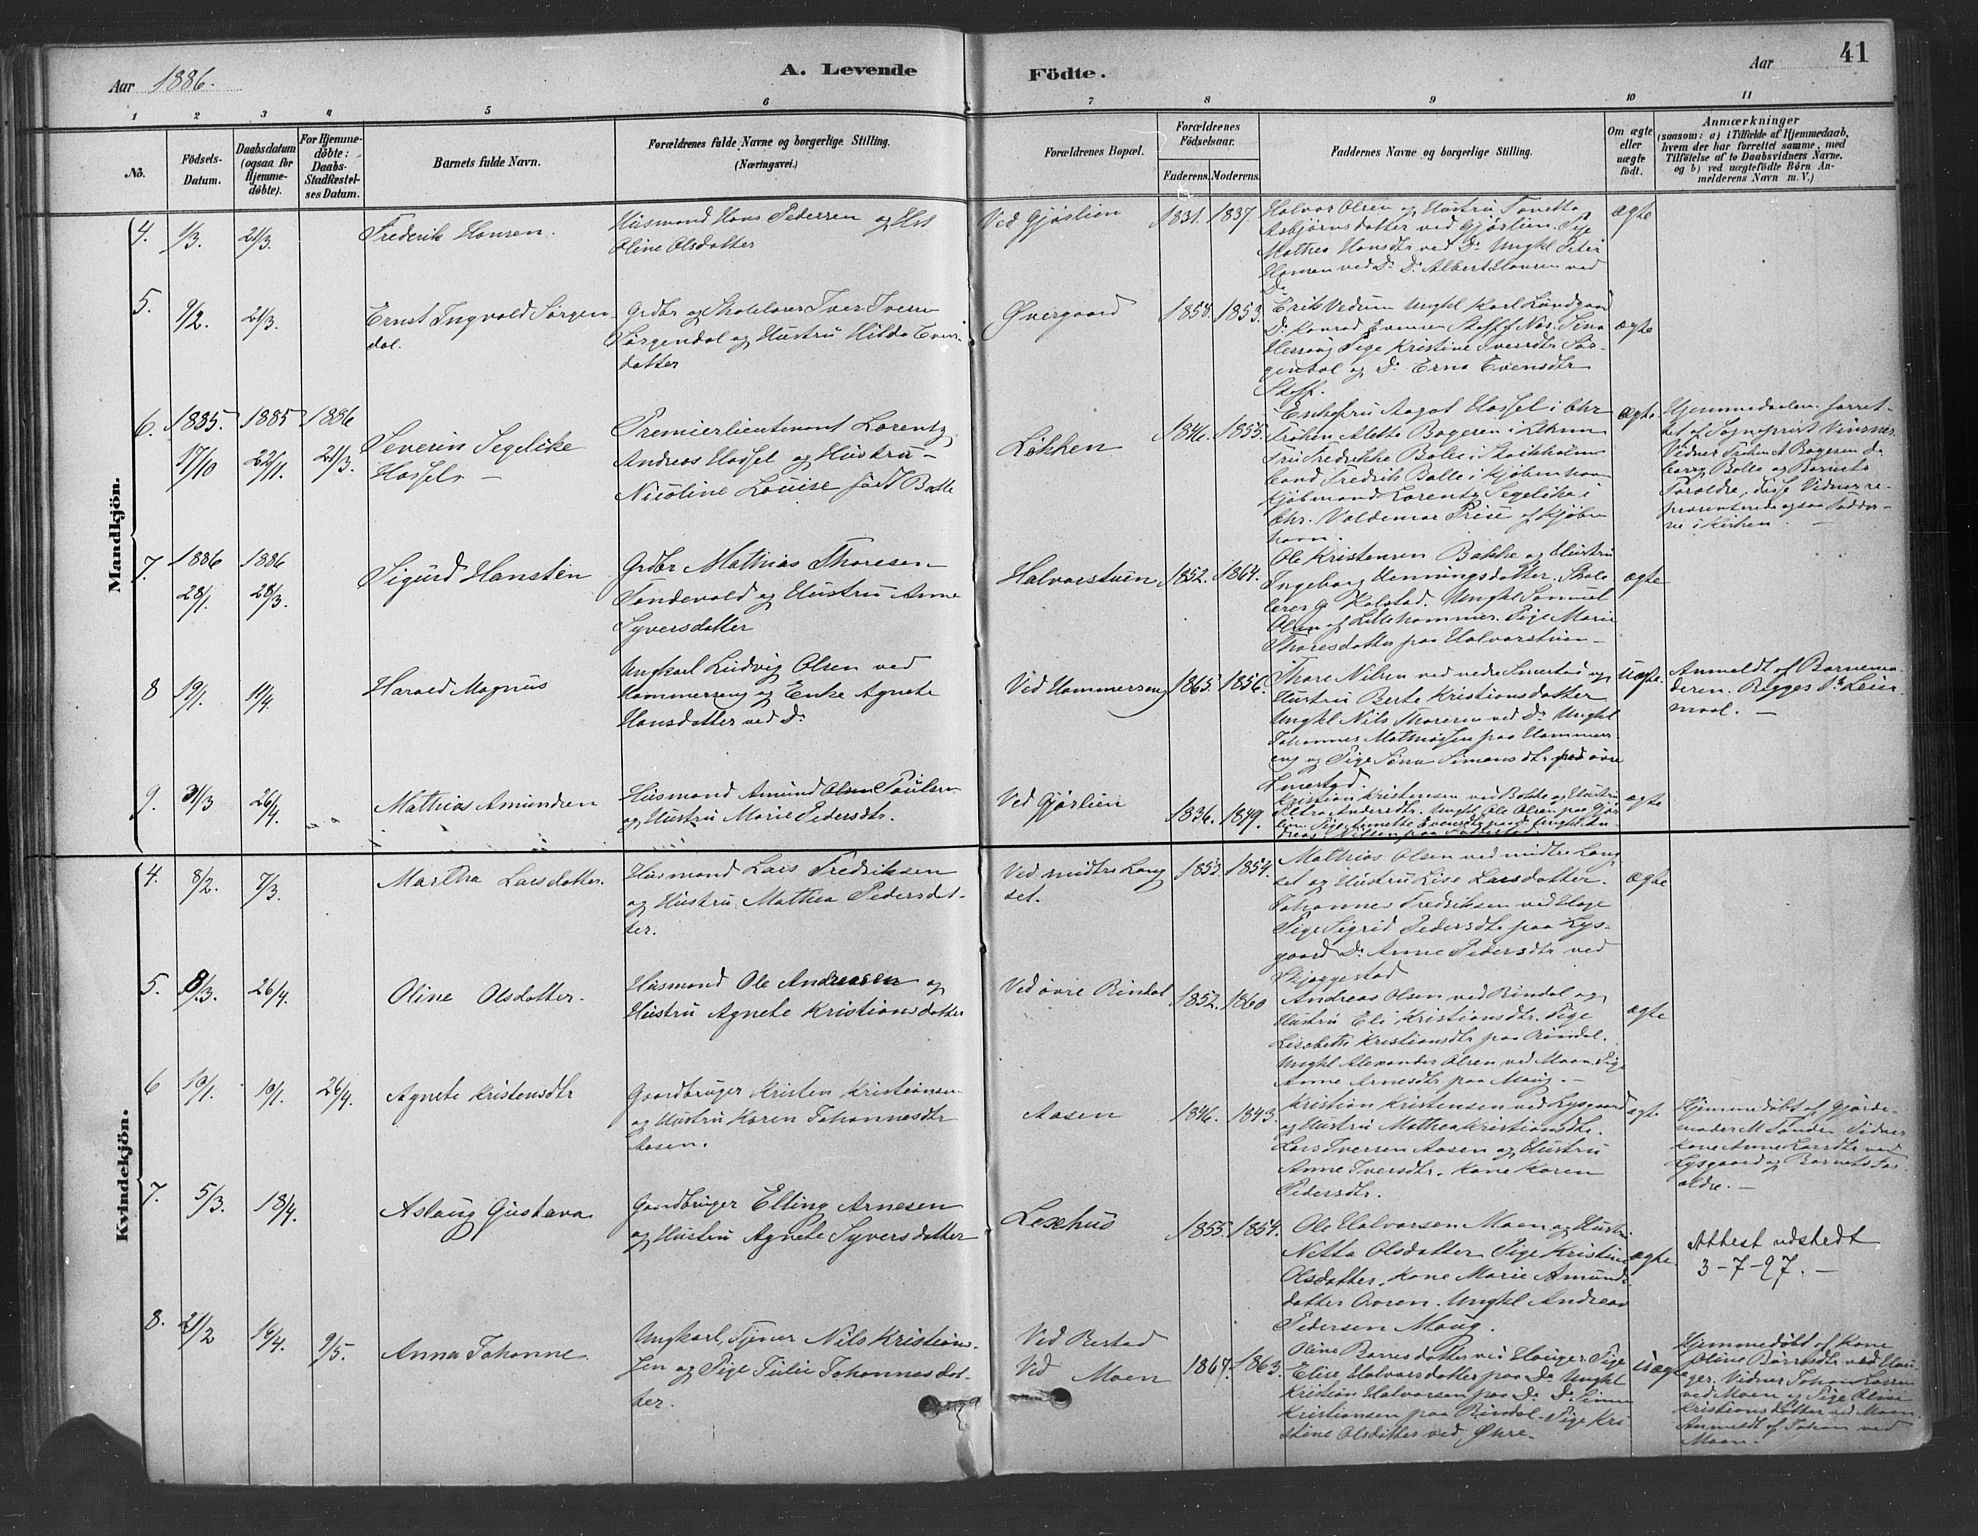 Aar 1886.
A. Levende
Födte.
Aar
41
1 2 3 4 5 6 7 8 9 10 11
No.
Födsels-
Datum.
Daabsdatum
(ogsaa for
Hjemme-
døbte).
For Hjemme-
døbte:
Daabs-
Stadfæstel-
ses Datum.
Barnets fulde Navn.
Forældrenes fulde Navne og borgerlige Stilling.
(Næringsvei.)
Forældrenes Bopæl.
Forældrenes
Födselsaar.
Faderens. Moderens.
Faddernes Navne og borgerlige Stilling.
Om ægte
eller
uægte
født.
Anmærkninger
(saasom: a) i Tilfælde af Hjemmedaab,
hvem der har forrettet samme, med
Tilföielse af to Daabsvidners Navne,
og b) ved uægtefödte Börn An-
melderens Navn m. V.)
Mandkjön.
4. 1/3. 21/3.
Frederik Hansen.
Husmand Hans Pedersen og Hst
Oline Olsdatter
Ved Gjøslien
1831. 1837.
Halvor Olsen og Hustru Tonetta
Asbjørnsdatter ved Gjøslien. Pige
Mathea Hansdtr ved Do Ungkl Peter
Hansen ved Do. Do Albert Hansen ved
Do
ægte
5. 9/2. 21/3.
Ernst Ingvald Sørgen-
dal.
Grdbr og Skolelærer Iver Iversen
Sørgendal og Hustru Hilda Evens-
datter
Øvergaard
1850. 1853.
Erik Vedum Ungkl Karl Lundgaard
Do Konrad Evensen Stoff
Pige Kristine Iversdtr Sør-
gendal og Do Erna Evensdtr
Stoff.
ægte
6. 1885. 17/10 1885 22/11. 1886 21/3.
Severin Segelcke
Hassel. —
Premierlieutenant Lorentz
Andreas Hassel og Hustru —
Nicoline Louise født Bolle
Løkken
1846. 1855.
Enkefru Aagot Hassel i Chr
Frøken Alette Bogesen i
Fru Fredrikke Bolle i Stockholm
Cand Fredrik Bolle i Kjøbenhavn
Kjøbmand Lorentz Segelcke i
Chr. Valdemar Prise af Kjøben
havn.
ægte
Hjemmedaaben forret-
tet af Sogneprest Vinsnes
Vidner Frøken A Bogesen
Bolle og Barnets
Forældre, disse Vidner re-
præsenterede ogsaa Fadder-
ne i Kirken. —
7. 1886 28/1. 1886 28/3.
Sigurd Hanstén
Grdbr Mathias Thoresen
Tandevold og Hustru Anne
Syversdatter
Halvorstuen
1852. 1864.
Ole Kristensen Bakke og Hustru
Ingeborg Henningsdatter. Skole
lærer G Kolstad. Ungkl Samuel
Olsen af Lillehammer. Pige Marie
Thoresdatter paa Halvorstuen —
ægte
8 19/1. 11/4.
Harald Magnus
Ungkarl Ludvig Olsen ved
Hammerseng og Enke Agnete
Hansdatter ved Do
Ved Hammerseng
1865. 1856.
Thore Nilsen ved nedre Smestad og
Hustru Berte Kristiansdatter
Ungkl Nils Thoresen ved Do Ungkl
Johannes Mathiassen paa Hammers-
eng og Pige Sina Simensdtr paa øvre
Smestad.
Uægte.
Anmeldt af Barnemo-
deren. Begges 1ste Leier
maal. —
9. 31/3 26/4.
Mathias Amundsen
Husmand Amund Olsen Paulsen
og Hustru Marie Pedersdtr.
Ved Gjøslien
1836. 1849.
Kristian Kristensen ved Bakke og Hustru
Petra Andersdtr. Ungkl Ole Olsen paa Gjøs
lien. Pige Annette Evensdtr paa Do Ungkl An-
dreas Nilsen paa
ægte
Kvindekjön.
4. 8/2. 7/3.
Martha Larsdatter.
Husmand Lars Fredriksen
og Hustru Mathea Pedersdat-
ter.
Ved midtre Lang
set.
1853. 1854.
Mathias Olsen ved midtre Lang
set og Hustru Lise Larsdatter.
Johannes Fredriksen ved Hage
Pige Sigrid Pedersdtr paa Lys-
gaard Do Anne Pedersdtr ved
Skjæggestad
ægte
5. 8/3. 26/4.
Oline Olsdatter.
Husmand Ole Andreasen og
Hustru Agnete Kristiansdatter
Ved øvre Rindal
1852. 1860
Andreas Olsen ved Rindal og
Hustru Eli Kristiansdtr. Pige
Lisabeth Kristiansdtr paa Rindal.
Ungkl Alexander Olsen ved Moen. Pige
Anne Arnesdtr paa Moug. —
ægte
6 10/1. 10/1. 26/4.
Agnete Kristensdtr
Gaardbruger Kristen Kristiansen
og Hustru Karen Johannesdtr
Aasen.
Aasen
1846. 1843.
Kristian Kristensen ved Lysgaard
og Hustru Mathea Kristiansdtr.
Lars Iversen Aasen og Hustru
Anne Iversdtr. Kone Karen
Pedersdtr.
ægte
Hjemmedøbt af Gjorde-
moder M Sander. Vidner
Kone Anne Larsdtr ved
Lysgaard og Barnets For-
ældre. —
7. 5/3. 18/4.
Aslaug Gustava
Gaardbruger Elling Arnesen
og Hustru Agnete Syversdatter
Lexhus
1855. 1854.
Ole Halvorsen Moen og Hustru
Netta Olsdatter Pige Kristine
Olsdatter, Kone Marie Amunds
datter Ovren. Ungkl Andreas
Pedersen Moug.
ægte.
Attest udstedt
3-7-97. —
8. 21/2 16/4. 9/5.
Anna Johanne
Ungkarl, Tjener Nils Kristian-
sen og Pige Julie Johannesdat-
ter.
Ved Berstad
Ved Moen
1867. 1863.
Oline Børresdatter ved Hauger. Pige
Elise Halvorsdatter paa Do Ungkl
Kristian Halvorsen paa Do. Do Simen
Kristiansen paa Rindal. Pige Kri-
stine Olsdatter ved Øhre.
Uægte
Hjemmedøbt af Kone
Oline Børresdtr ved Hau-
ger. Vidner Johan Larsen
ved Moen og Pige Oline
Kristiansdatter ved Moen.
Anmeldt af Johan ved
Moen.